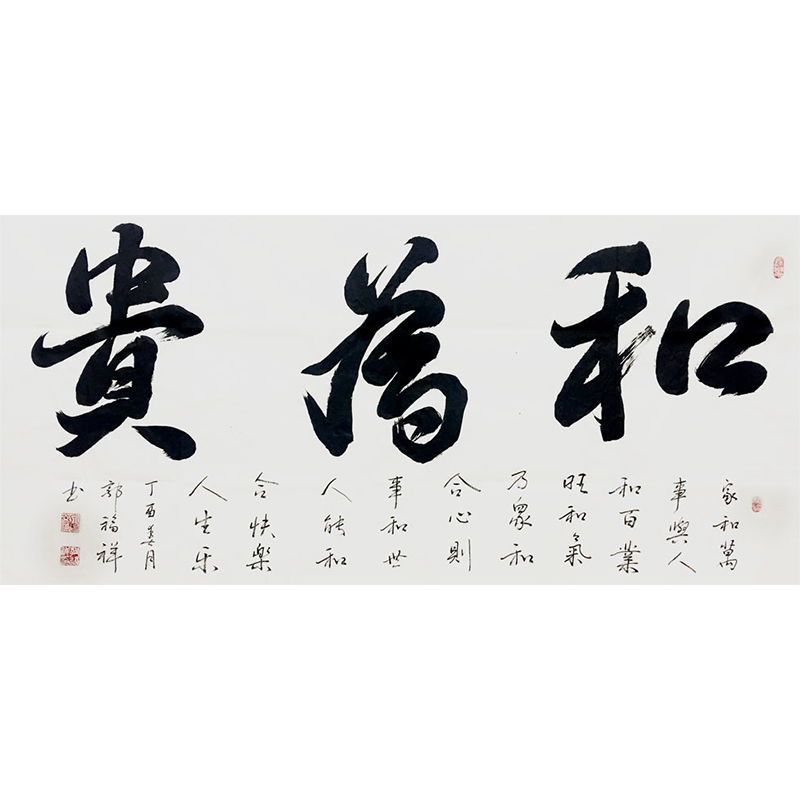 和為貴
家和萬
事興人
和百業
旺和氣
乃眾和
合心則
事和世
人能和
合快樂
人生乐
丁酉美月
郭福祥
书